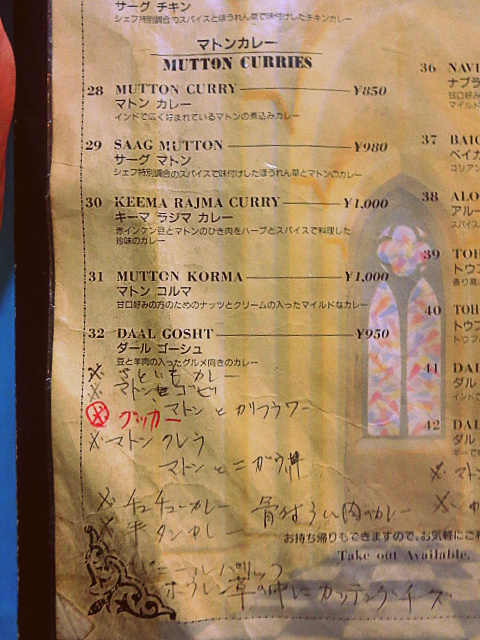 サーグ チキン
シェフ特別調合のスパイスとほうれん草で味付けしたチキンカレー
マトンカレー
MUTTON CURRIES
28 MUTTON CURRY ¥850
マトン カレー
インドで広く好まれているマトンの煮込みカレー
29 SAAG MUTTON ¥980
サーグ マトン
シェフ特別調合のスパイスで味付けしたほうれん草とマトンのカレー
30 KEEMA RAJMA CURRY ¥1,000
キーマ ラジマ カレー
赤インゲン豆とマトンのひき肉をハーブとスパイスで料理した
珍味のカレー
31 MUTTON KORMA ¥1,000
マトン コルマ
甘口好みの方のためのナッツとクリームの入ったマイルドなカレー
32 DAAL GOSHT ¥950
ダール ゴーシュ
豆と羊肉の入ったグルメ向きのカレー
さといも カレー
マトン ゴビ
マトン と カリフラワー
マトン カレラ
マトン と ニガウリ
チュチューカレー
牛タンカレー
お持ち帰りもできますので、お気軽にご
Take out Available.
ホウレン草の中に カッテージチーズ
36 NAV
ナブラ
甘口好み
マイルド
37 BAI
ベイガ
コリアン
38 ALO
アルー
スパイス
39 TOH
トウフ
香り高
40 TOH
トウフ
トウフ
41 DAL
ダル
インドで
42 DAL
ダル
ギーで
マト